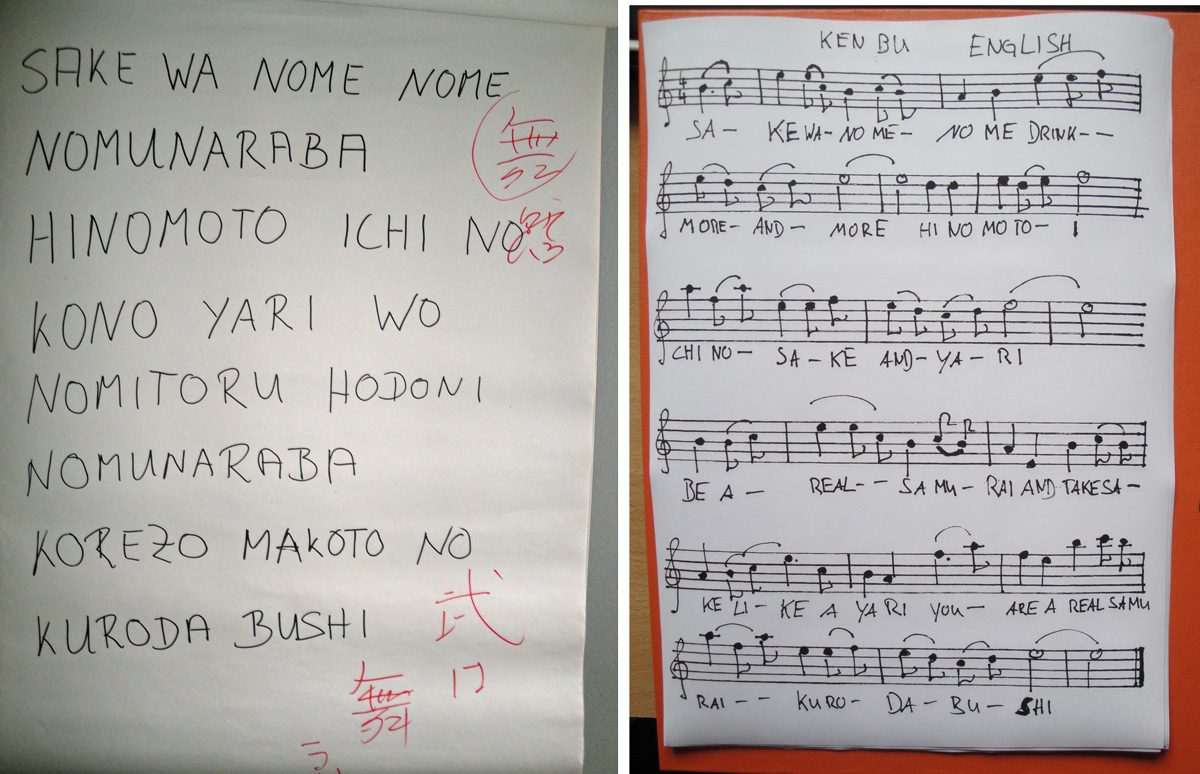 SAKE WA NOME NOME
NOMUNARABA
HINOMOTO ICHI NO
KONO YARI WO
NOMITORU HODONI
NOMUNARABA
KOREZO MAKOTO NO
KURODA BUSHI
武
舞
KEN BU ENGLISH
SA- KE WA- NO ME- NO ME DRINK--
MORE- AND- MORE HI NO MO TO- I
CHI NO- SA- KE AND- YA- RI
BE A- REAL-- SA MU- RAI AND TAKE SA-
KE LI- KE A YA RI YOU- ARE A REAL SAMU
RAI-- KURO- DA- BU- SHI